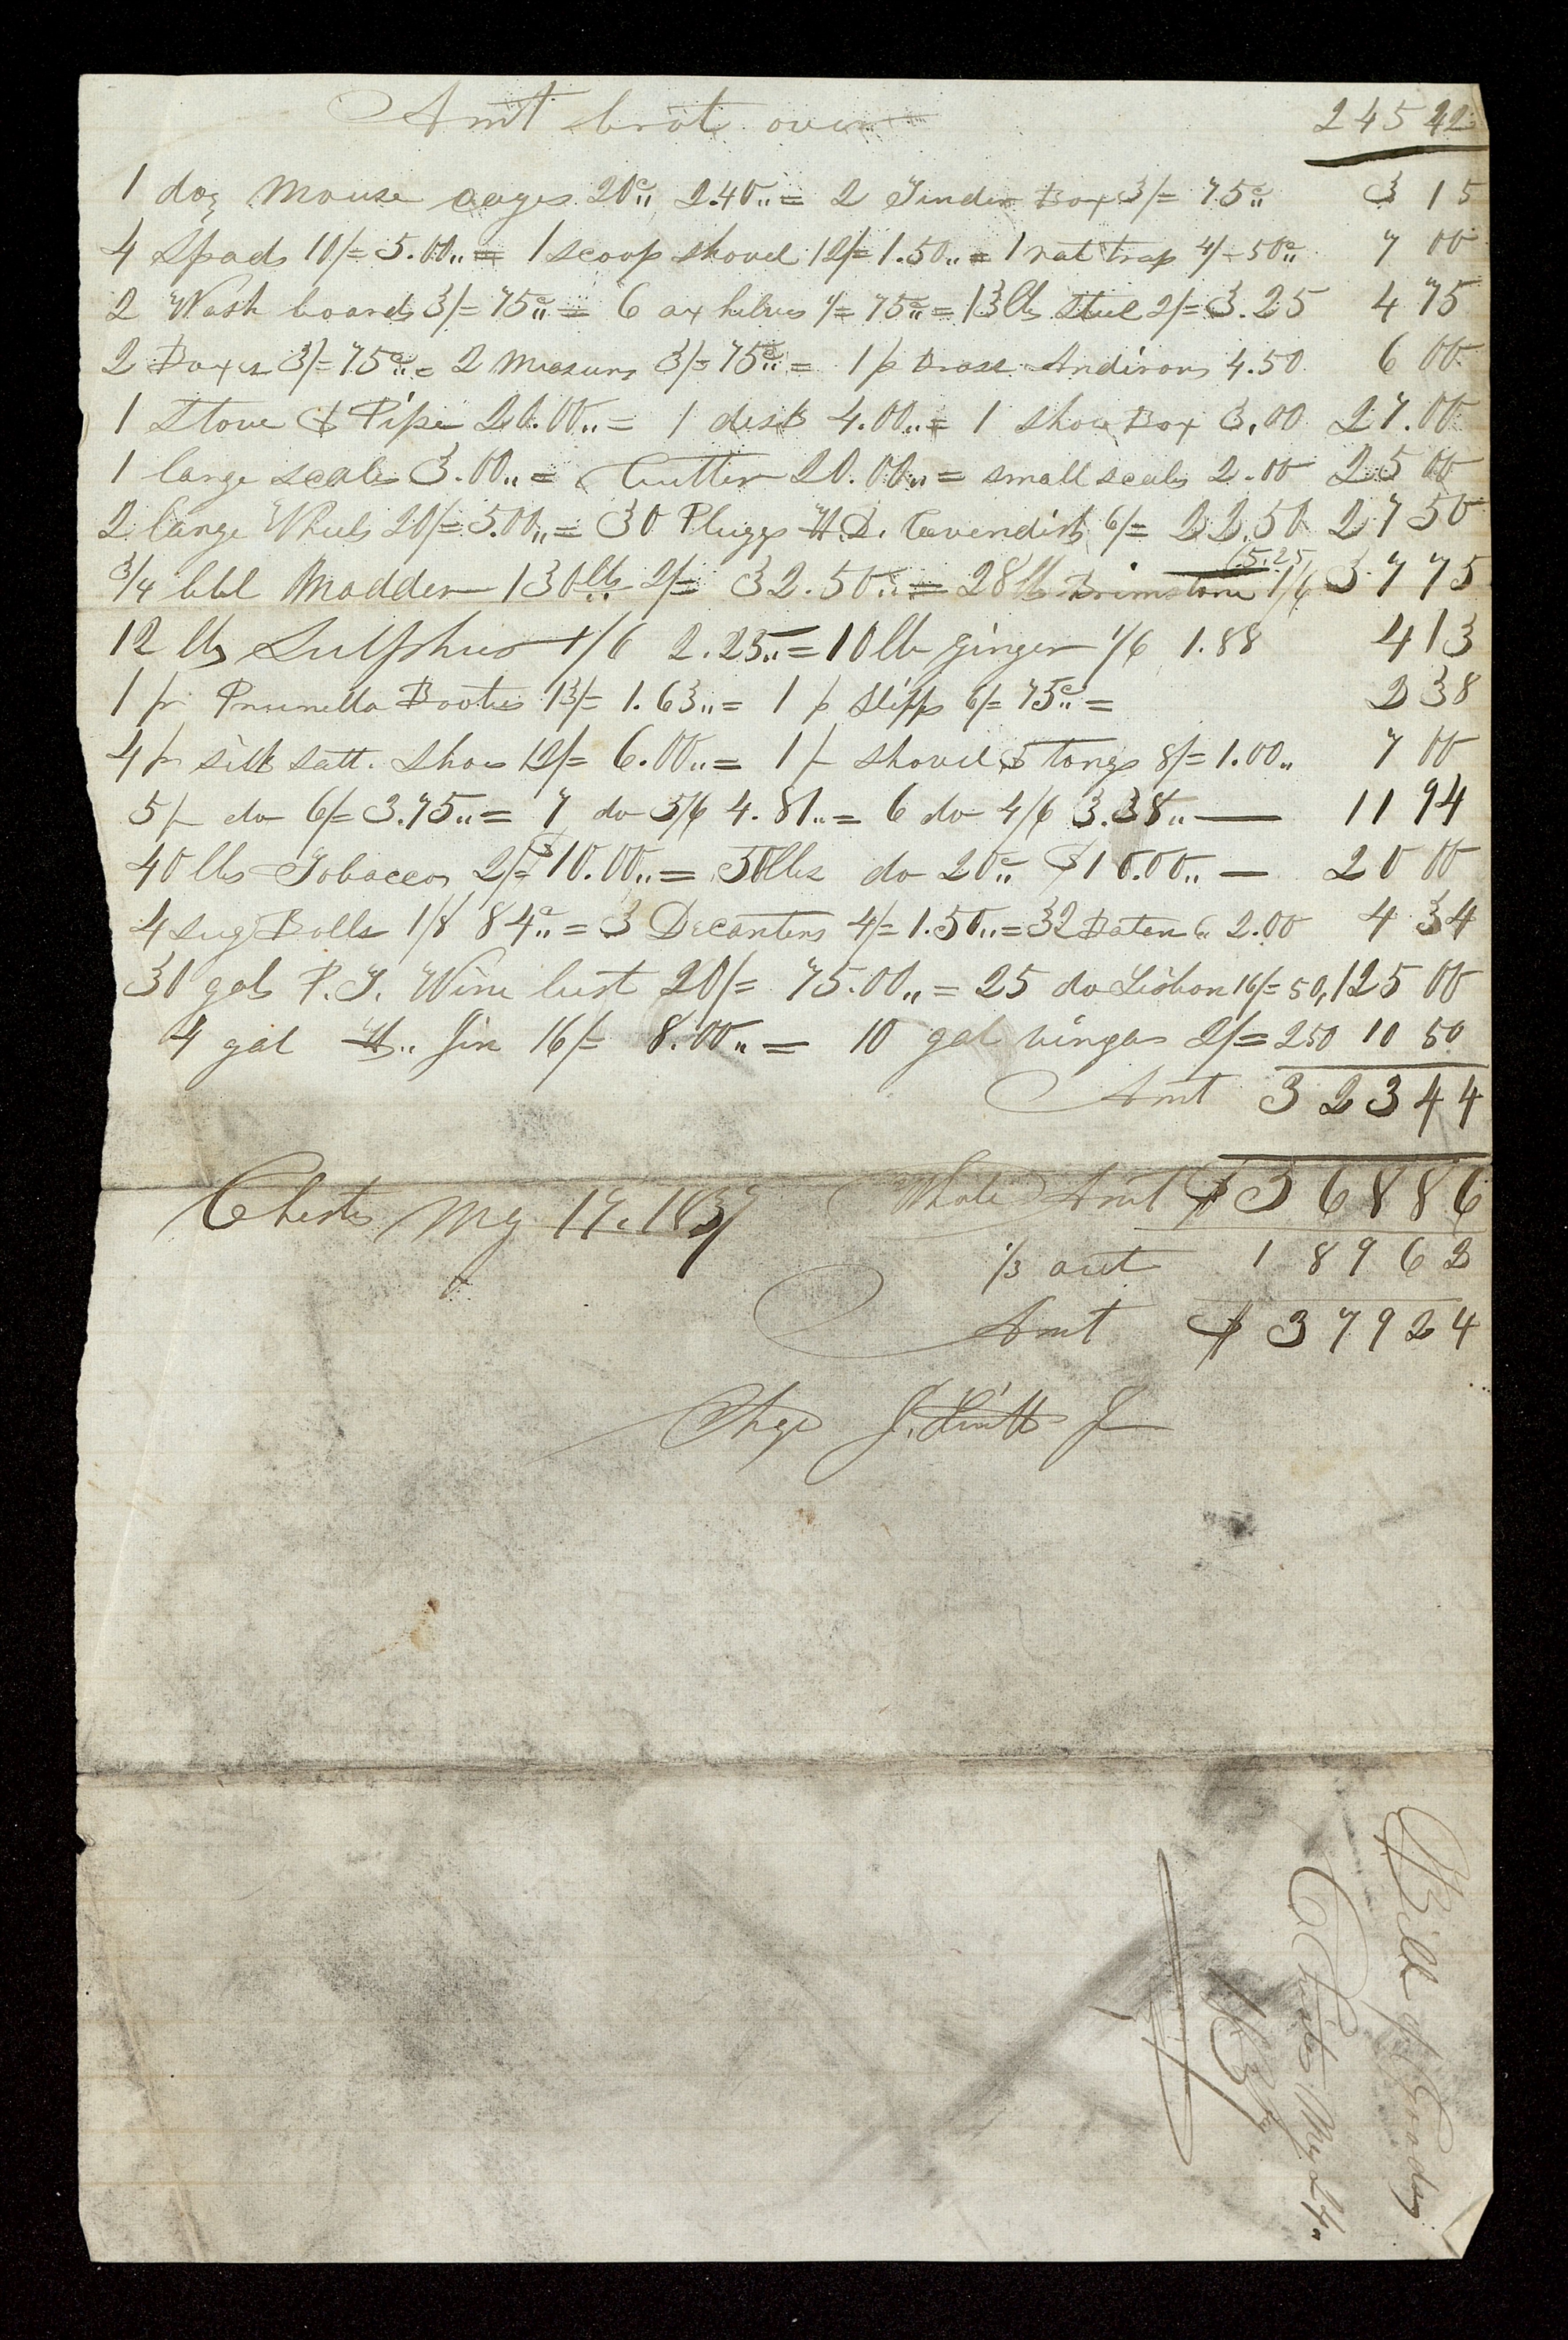 Amt brot over 245 42
1 doz Mouse cages 20c,, 2.40,, = 2 Tinder Box 3/= 75c,, 3 15
4 Spads 10/= 5.00,, = 1 scoop shovel 12/= 1.50,, = 1 rat trap 4/= 50c,, 7 00
2 Wash boards 3/= 75c,, = 6 ax helves 1/= 75c,, = 13 lbs Steel 2/= 3.25 4 75
2 Boxes 3/= 75c,, = 2 Measurs 3/= 75c,, = 1 p Brass Andirons 4.50 6 00
1 Stove & Pipe 20.00,, = 1 desk 4.00,, = 1 Shoe Box 3.00 27.00
1 large scales 3.00,, = Cutter 20.00,, = small scales 2.00 25 00
2 large Wheels 20/= 5.00,, = 30 Pluggs H.D. Cavendish 6/= 22.50 27 50
3/4 bbl Madder 130 lbs 2/= 32.50,, = 28 lb Brimstone 1/6 5.25 37 75
12 lbs Sulphur 1/6 2.25,, = 10 lb ginger 1/6 1.88 4 13
1 pr Prunella Booties 13/= 1.63,, = 1 p Slipps 6/= 75c,, = 2 38
4 pr silk satt. Shoes 12/= 6.00,, = 1 p shovel & tongs 8/= 1.00,, 7 00
5 p do 6/= 3.75,, = 7 do 5/6 4.81,, = 6 do 4/6 3.38,, — 11 94
40 lbs Tobacco 2/= $10.00,, = 50 lbs do 20c,, $10.00,, — 20 00
4 Sug Bolls 1/8 84c,, = 3 Decanters 4/= 1.50,, = 32 6,, 2.00 4 34
30 gals P.T. Wine best 20/= 75.00,, = 25 do Lisbon 16/= 50, 125 00
4 gal H,, Gin 16/= 8.00,, = 10 gal vingar 2/= 2 50 10 50
Amt 323 44
Whole Amt $568 86
Chester My 17. 1837
1/3 out 189 62
Amt $379 24
Chge J. J
Bill of Goods
Chester My 24,,
1837